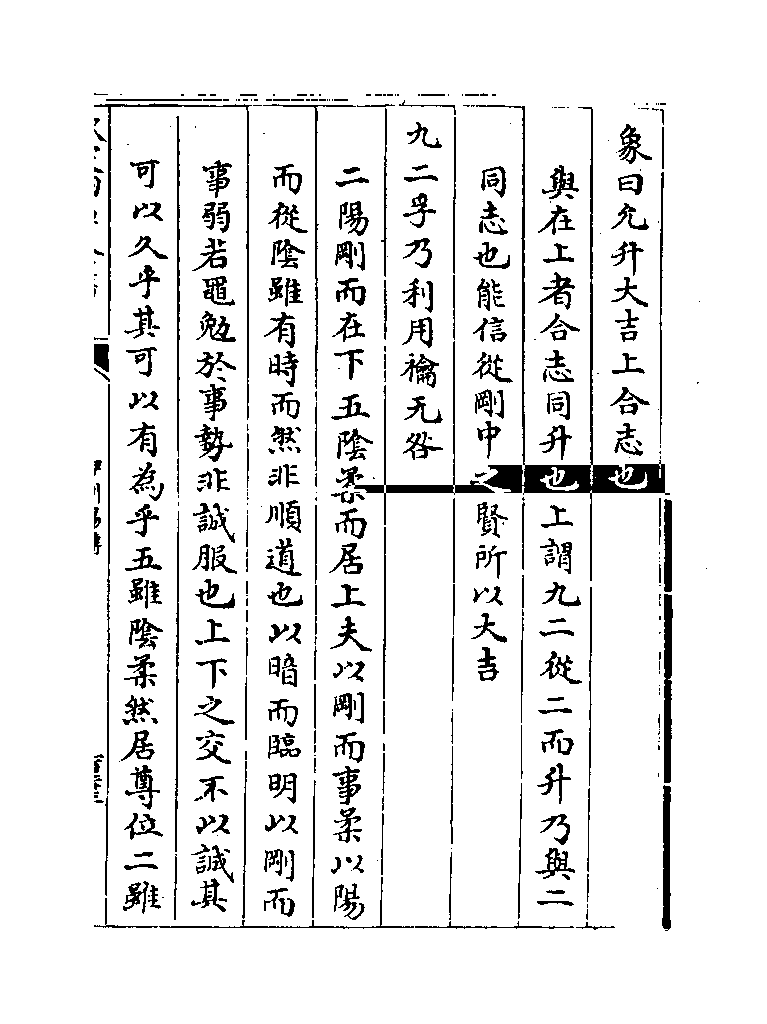 象曰允升大吉上合志也
與在上者合志同升也上謂九二從二而升乃與二
同志也能信從剛中之賢所以大吉
九二孚乃利用禴无咎
二陽剛而在下五陰柔而居上夫以剛而事柔以陽
而從陰雖有時而然非順道也以暗而臨明以剛而
事弱若黽勉於事勢非誠服也上下之交不以誠其
可以久乎其可以有為乎五雖陰柔然居尊位二雖
伊川易傳